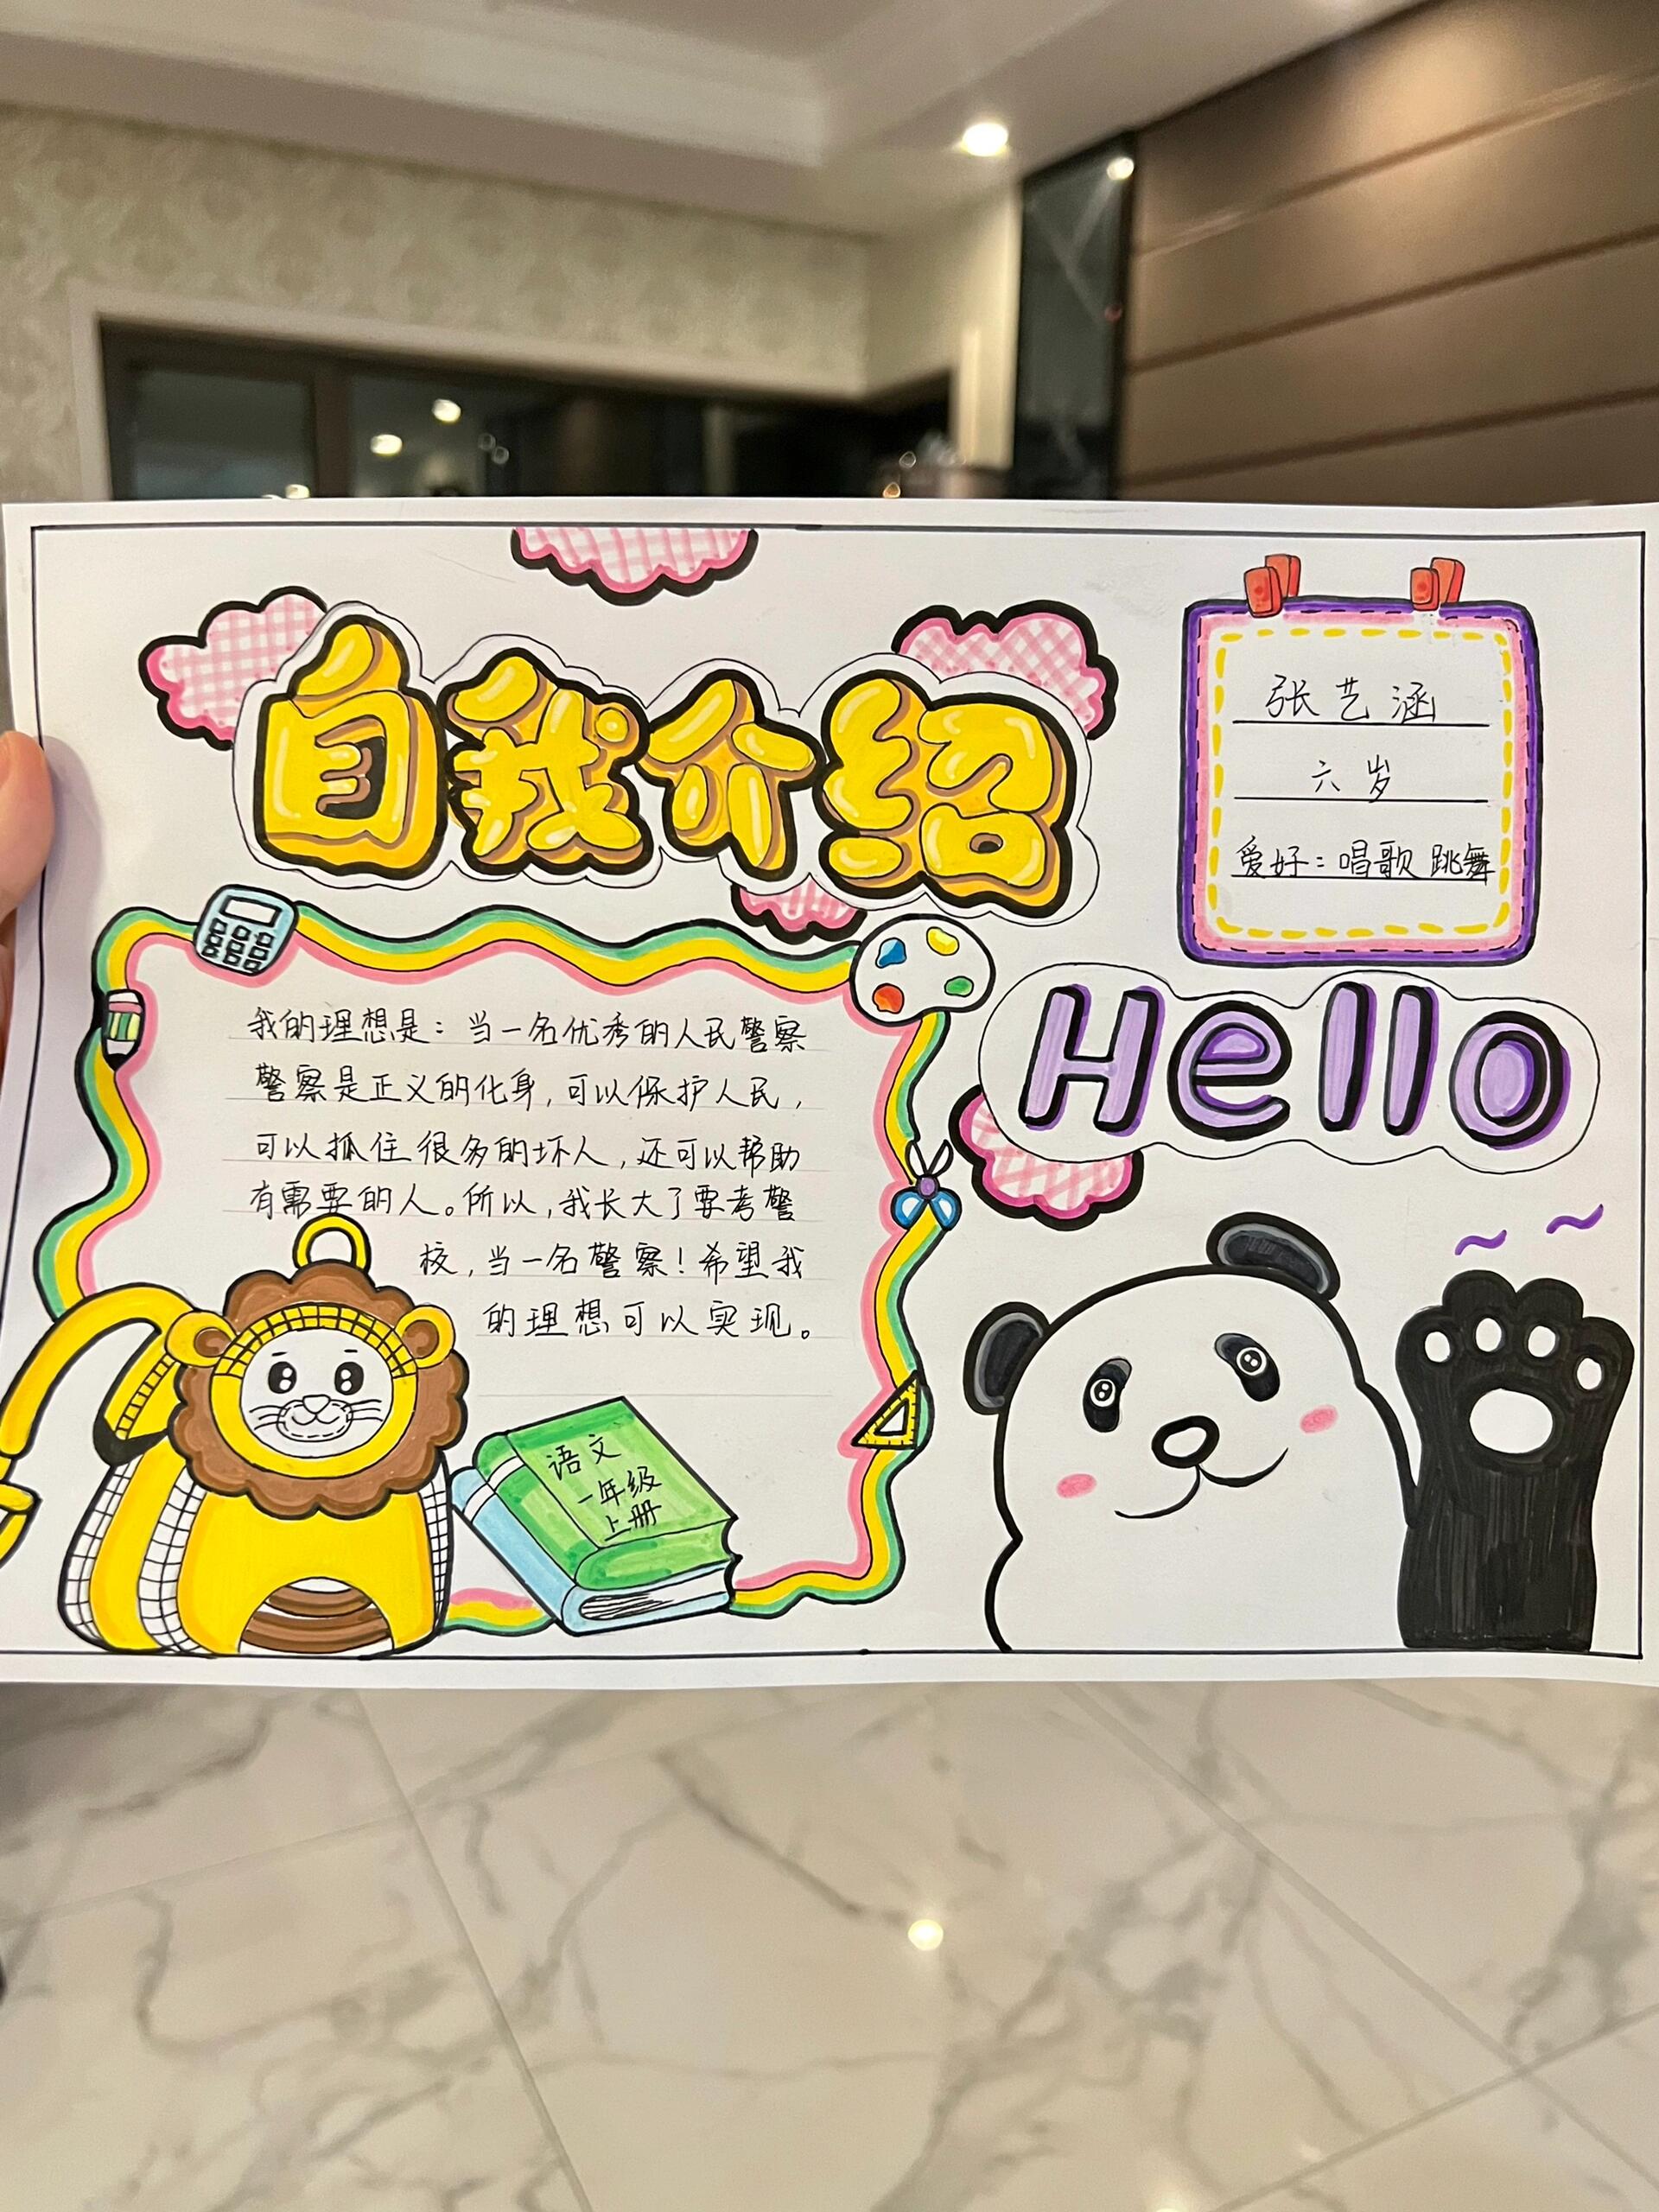 自我介绍
张艺涵
六岁
爱好：唱歌 跳舞
Hello
我的理想是：当一名优秀的人民警察
警察是正义的化身，可以保护人民，
可以抓住很多的坏人，还可以帮助
有需要的人。所以，我长大了要考警
校，当一名警察！希望我
的理想可以实现。
语文
一年级
上册